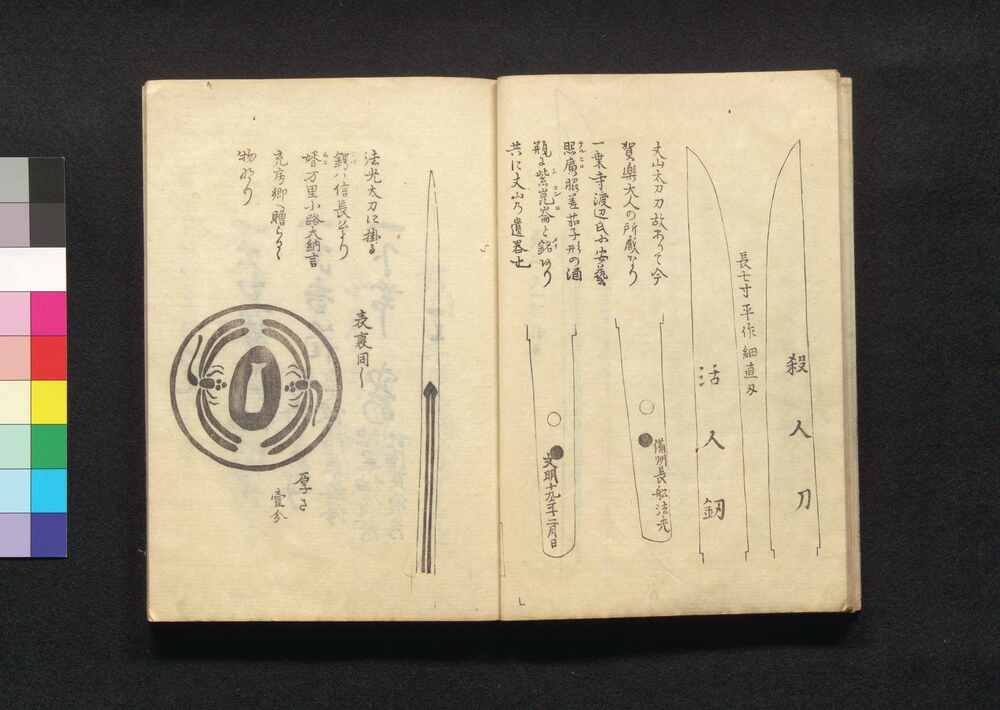 殺人刀
長七寸平作細直刃
活人釼
丈山太刀故ありて今
賀樂大人の所蔵なり
一乗寺渡辺氏に安藝
照廣脇差茄子形の酒
瓶に紫崑崙と銘あり
共に丈山の遺器也
備州長船法光
文明十九年二月日
法光太刀に掛る
鍔ハ信長公より
婿万里小路大納言
充房卿へ贈らるゝ
物なり
表裏同し
厚さ
壹分